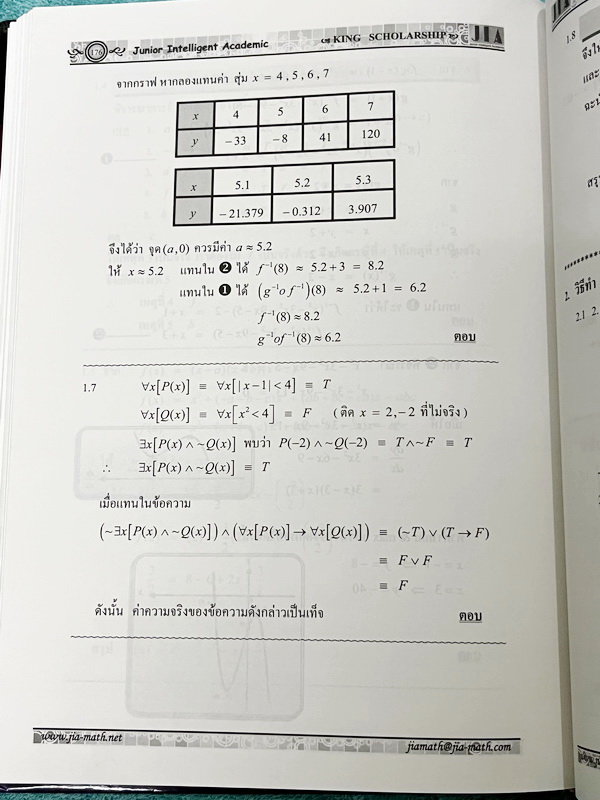 176 Junior Intelligent Academic
KING SCHOLARSHIP JIA
จากกราฟ หากลองแทนค่า สุ่ม x = 4 , 5 , 6 , 7
x 4 5 6 7
y −33 −8 41 120
x 5.1 5.2 5.3
y −21.379 −0.312 3.907
จึงได้ว่า จุด (a,0) ควรมีค่า a ≈ 5.2
ให้ x ≈ 5.2 แทนใน ❷ ได้ f⁻¹(8) ≈ 5.2+3 = 8.2
แทนใน ❶ ได้ (g⁻¹o f⁻¹)(8) ≈ 5.2+1 = 6.2
f⁻¹(8) ≈ 8.2
g⁻¹of⁻¹(8) ≈ 6.2 ตอบ
1.7 ∀x[P(x)] ≡ ∀x[|x−1|<4] ≡ T
∀x[Q(x)] ≡ ∀x[x²<4] ≡ F (ติด x = 2,−2 ที่ไม่จริง)
∃x[P(x) ∧ ~Q(x)] พบว่า P(−2) ∧ ~Q(−2) ≡ T∧~F ≡ T
∴ ∃x[P(x) ∧ ~Q(x)] ≡ T
เมื่อแทนในข้อความ
(~∃x[P(x) ∧ ~Q(x)]) ∧ (∀x[P(x)] → ∀x[Q(x)]) ≡ (~T) ∨ (T → F)
≡ F ∨ F
≡ F
ดังนั้น ค่าความจริงของข้อความดังกล่าวเป็นเท็จ ตอบ
www.jia-math.net
jiamath@jia-math.com
1.8
จึงให้
และ
2. วิธีทำ
2.1 2.